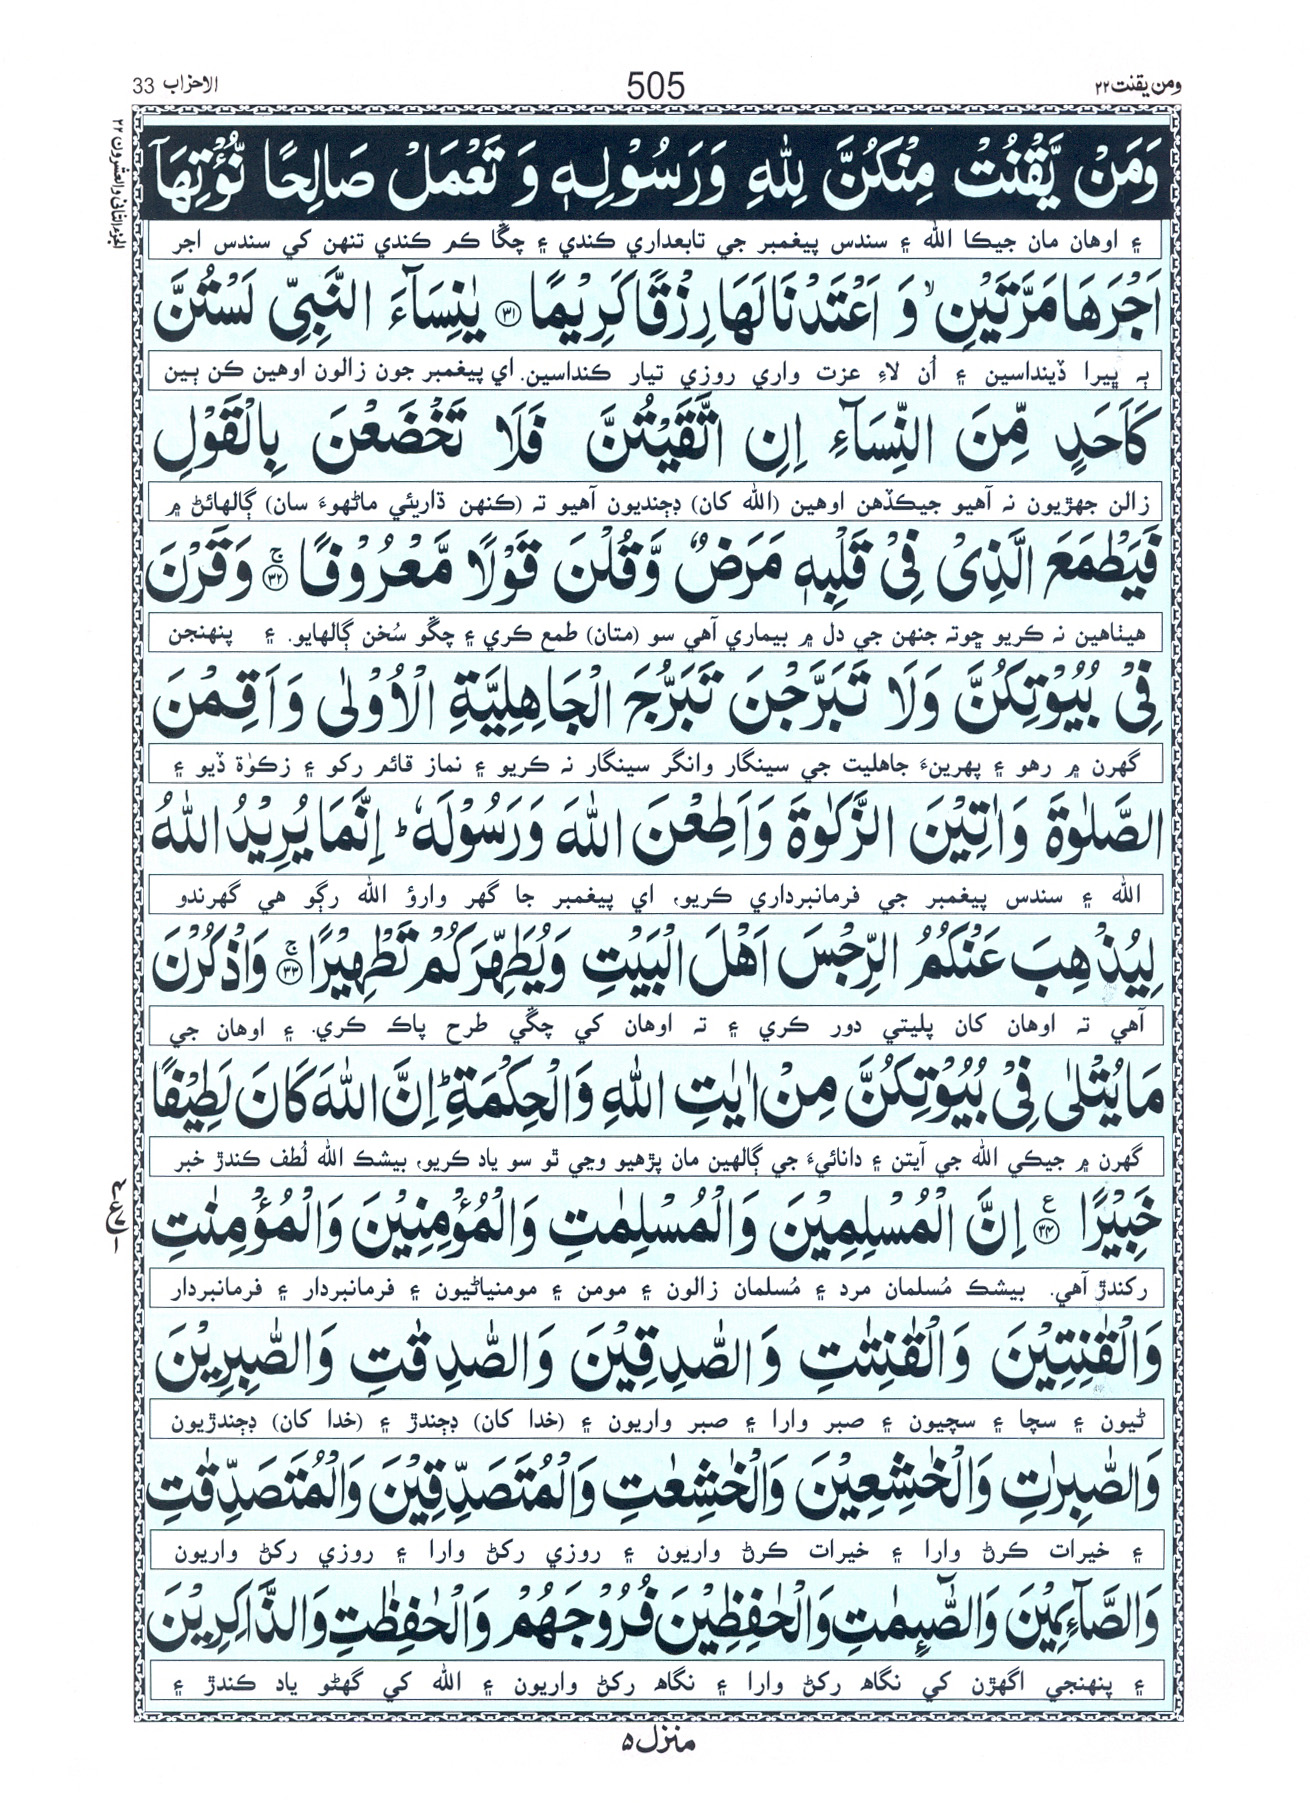 ومن يقنت٢٢
505
الاحزاب 33
الجزء الثاني والعشرون ٢٢
وَمَنْ يَّقْنُتْ مِنْكُنَّ لِلّٰهِ وَرَسُوْلِهٖ وَ تَعْمَلْ صَالِحًا نُّؤْتِهَاۤ
۽ اوهان مان جيڪا الله ۽ سندس پيغمبر جي تابعداري ڪندي ۽ چڱا ڪم ڪندي تنهن کي سندس اجر
اَجْرَهَا مَرَّتَيْنِ ۙ وَ اَعْتَدْنَا لَهَا رِزْقًا كَرِيْمًا ﴿٣١﴾ يٰنِسَآءَ النَّبِيِّ لَسْتُنَّ
ٻہ ڀيرا ڏينداسين ۽ اُن لاءِ عزت واري روزي تيار ڪنداسين. اي پيغمبر جون زالون اوهين ڪن ٻين
كَاَحَدٍ مِّنَ النِّسَآءِ اِنِ اتَّقَيْتُنَّ فَلَا تَخْضَعْنَ بِالْقَوْلِ
زالن جهڙيون نہ آهيو جيڪڏهن اوهين (الله کان) ڊڄنديون آهيو تہ (ڪنهن ڌاريئي ماڻهوءَ سان) ڳالهائڻ ۾
فَيَطْمَعَ الَّذِىْ فِىْ قَلْبِهٖ مَرَضٌ وَّقُلْنَ قَوْلًا مَّعْرُوْفًا ﴿٣٢﴾ ۚ وَقَرْنَ
هيٺاهين نہ ڪريو ڇوتہ جنهن جي دل ۾ بيماري آهي سو (متان) طمع ڪري ۽ چڱو سُخن ڳالهايو. ۽ پنهنجن
فِىْ بُيُوْتِكُنَّ وَلَا تَبَرَّجْنَ تَبَرُّجَ الْجَاهِلِيَّةِ الْاُوْلٰى وَاَقِمْنَ
گهرن ۾ رهو ۽ پهرينءَ جاهليت جي سينگار وانگر سينگار نہ ڪريو ۽ نماز قائم رکو ۽ زڪوٰة ڏيو ۽
الصَّلٰوةَ وَاٰتِيْنَ الزَّكٰوةَ وَاَطِعْنَ اللّٰهَ وَرَسُوْلَهٗ ؕ اِنَّمَا يُرِيْدُ اللّٰهُ
الله ۽ سندس پيغمبر جي فرمانبرداري ڪريو، اي پيغمبر جا گهر وارؤ الله رڳو هي گهرندو
لِيُذْهِبَ عَنْكُمُ الرِّجْسَ اَهْلَ الْبَيْتِ وَيُطَهِّرَكُمْ تَطْهِيْرًا ﴿٣٣﴾ ۚ وَاذْكُرْنَ
آهي تہ اوهان کان پليتي دور ڪري ۽ تہ اوهان کي چڱي طرح پاڪ ڪري. ۽ اوهان جي
مَا يُتْلٰى فِىْ بُيُوْتِكُنَّ مِنْ اٰيٰتِ اللّٰهِ وَالْحِكْمَةِ ؕ اِنَّ اللّٰهَ كَانَ لَطِيْفًا
گهرن ۾ جيڪي الله جي آيتن ۽ دانائيءَ جي ڳالهين مان پڙهيو وڃي ٿو سو ياد ڪريو، بيشڪ الله لُطف ڪندڙ خبر
خَبِيْرًا ﴿٣٤﴾ ع اِنَّ الْمُسْلِمِيْنَ وَالْمُسْلِمٰتِ وَالْمُؤْمِنِيْنَ وَالْمُؤْمِنٰتِ
رکندڙ آهي. بيشڪ مُسلمان مرد ۽ مُسلمان زالون ۽ مومن ۽ مومنياڻيون ۽ فرمانبردار ۽ فرمانبردار
وَالْقٰنِتِيْنَ وَالْقٰنِتٰتِ وَالصّٰدِقِيْنَ وَالصّٰدِقٰتِ وَالصّٰبِرِيْنَ
ٿيون ۽ سچا ۽ سچيون ۽ صبر وارا ۽ صبر واريون ۽ (خدا کان) ڊڄندڙ ۽ (خدا کان) ڊڄندڙيون
وَالصّٰبِرٰتِ وَالْخٰشِعِيْنَ وَالْخٰشِعٰتِ وَالْمُتَصَدِّقِيْنَ وَالْمُتَصَدِّقٰتِ
۽ خيرات ڪرڻ وارا ۽ خيرات ڪرڻ واريون ۽ روزي رکڻ وارا ۽ روزي رکڻ واريون
وَالصَّآئِمِيْنَ وَالصّٰٓئِمٰتِ وَالْحٰفِظِيْنَ فُرُوْجَهُمْ وَالْحٰفِظٰتِ وَالذَّاكِرِيْنَ
۽ پنهنجي اگهڙن کي نگاھ رکڻ وارا ۽ نگاھ رکڻ واريون ۽ الله کي گهڻو ياد ڪندڙ ۽
منزل ٥